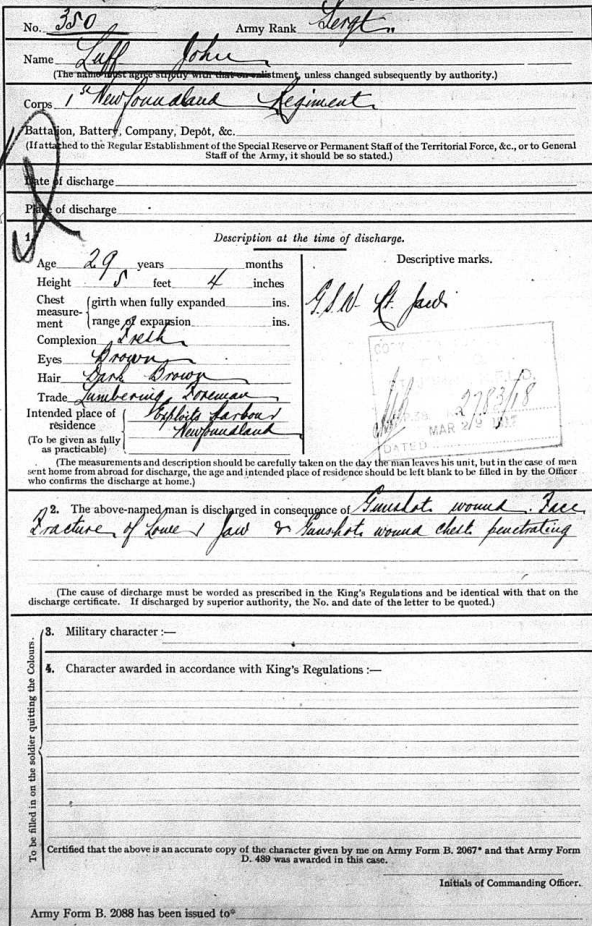 No. 350 Army Rank Sergt.
Name Luff John
(The name must agree strictly with that on enlistment, unless changed subsequently by authority.)
Corps 1st Newfoundland Regiment
Battalion, Battery, Company, Depôt, &c.
(If attached to the Regular Establishment of the Special Reserve or Permanent Staff of the Territorial Force, &c., or to General
Staff of the Army, it should be so stated.)
Date of discharge
Place of discharge
1. Description at the time of discharge.
Age 29 years months
Height 5 feet 4 inches
Chest measure-ment { girth when fully expanded ins.
range of expansion ins.
Complexion Fresh
Eyes Brown
Hair Dark Brown
Trade Lumbering Foreman
Intended place of residence Exploits Harbour
Newfoundland
(To be given as fully as practicable)
Descriptive marks.
G.S.W. Lt. Jaw
COPY
2783/18
MAR 29
DATED
(The measurements and description should be carefully taken on the day the man leaves his unit, but in the case of men
sent home from abroad for discharge, the age and intended place of residence should be left blank to be filled in by the Officer
who confirms the discharge at home.)
2. The above-named man is discharged in consequence of Gunshot wound Face
Fracture of Lower Jaw & Gunshot wound chest penetrating
(The cause of discharge must be worded as prescribed in the King's Regulations and be identical with that on the
discharge certificate. If discharged by superior authority, the No. and date of the letter to be quoted.)
To be filled in on the soldier quitting the Colours.
3. Military character :—
4. Character awarded in accordance with King's Regulations :—
Certified that the above is an accurate copy of the character given by me on Army Form B. 2067* and that Army Form
D. 489 was awarded in this case.
Initials of Commanding Officer.
Army Form B. 2088 has been issued to*